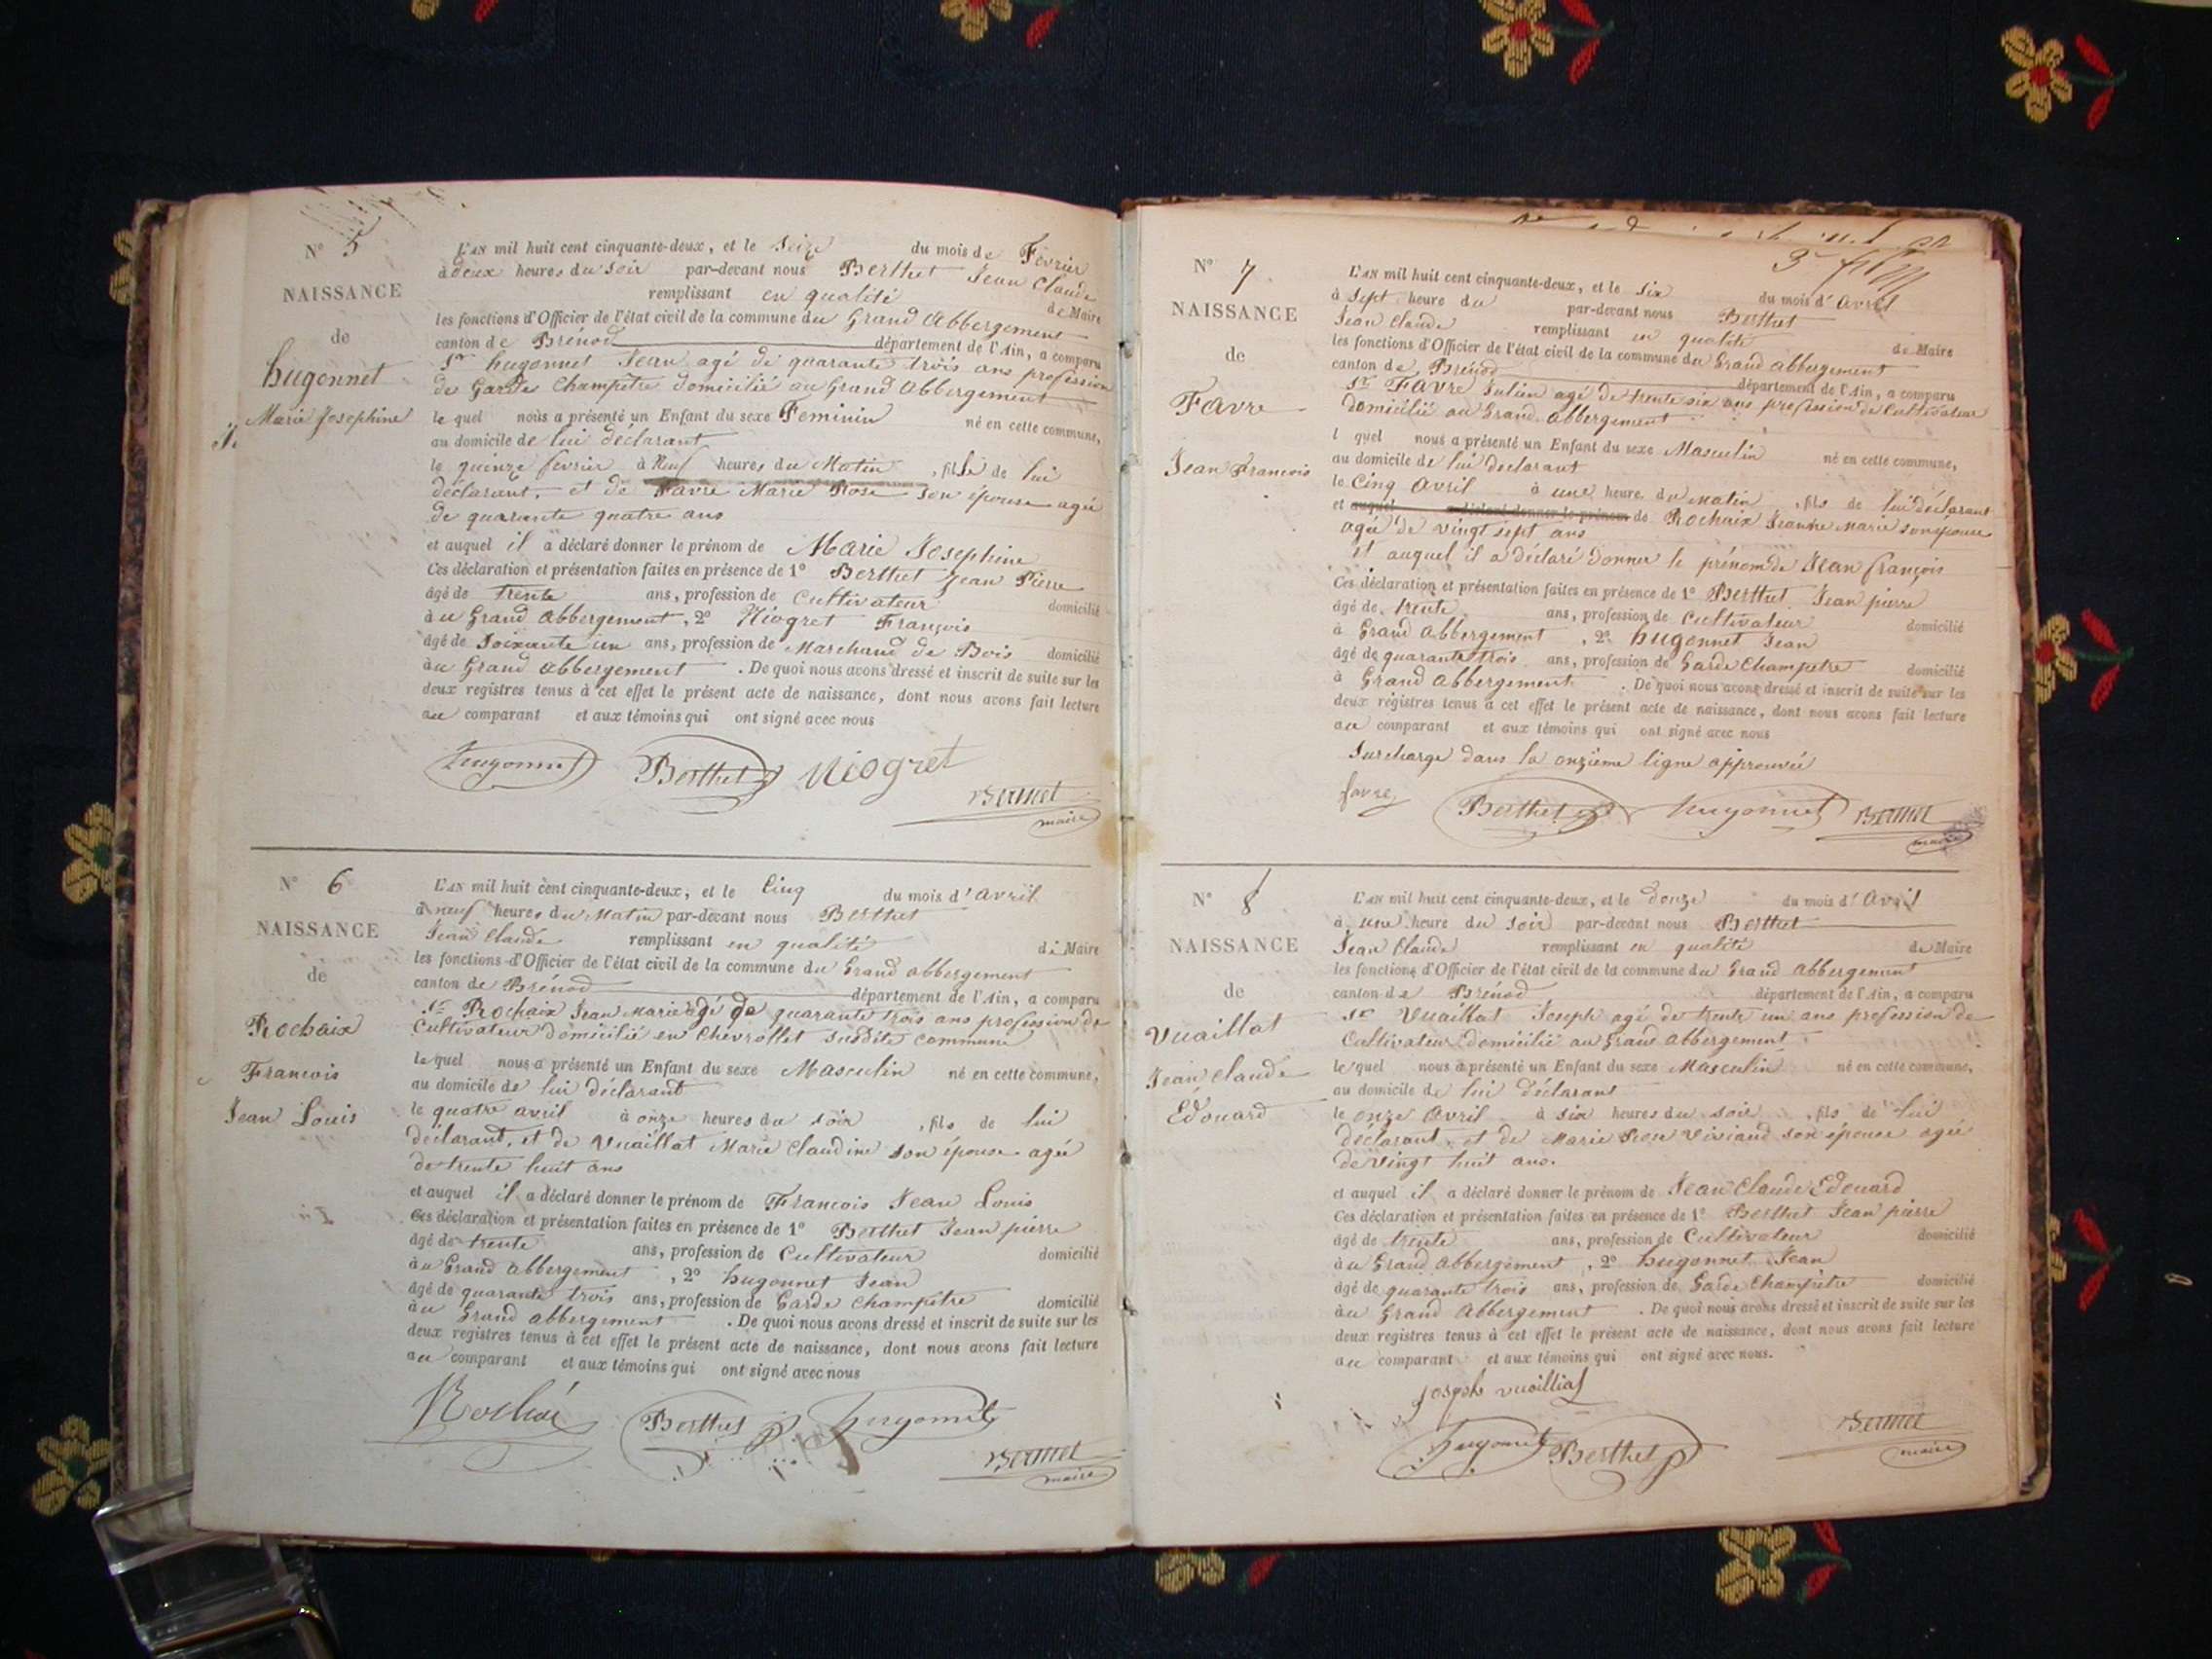 N° 5
NAISSANCE
de
hugonnet
Marie Josephine
L'AN mil huit cent cinquante-deux, et le Seize du mois de Février
à deux heures du Soir par-devant nous Berthet Jean Claude
remplissant en qualité de Maire
les fonctions d'Officier de l'état civil de la commune du Grand Abbergement
canton de Brénod département de l'Ain, a comparu
Sr hugonnet Jean agé de quarante trois ans profession
de Garde Champêtre domicilié au Grand Abbergement
le quel nous a présenté un Enfant du sexe Feminin né en cette commune,
au domicile de lui declarant
le quinze fevrier à Neuf heures du Matin, fille de lui
déclarant, et de Favre Marie Rose son épouse agée
de quarante quatre ans
et auquel il a déclaré donner le prénom de Marie Josephine
Ces déclaration et présentation faites en présence de 1° Berthet Jean Pierre
âgé de trente ans, profession de Cultivateur domicilié
au Grand Abbergement, 2° Niogret François
âgé de Soixante un ans, profession de Marchand de Bois domicilié
au Grand Abbergement. De quoi nous avons dressé et inscrit de suite sur les
deux registres tenus à cet effet le présent acte de naissance, dont nous avons fait lecture
au comparant et aux témoins qui ont signé avec nous
hugonnet Berthet Niogret
maire
N° 6
NAISSANCE
de
Rochaix
Francois
Jean Louis
L'AN mil huit cent cinquante-deux, et le Cinq du mois d'Avril
à neuf heures du Matin par-devant nous Berthet
Jean Claude remplissant en qualité de Maire
les fonctions d'Officier de l'état civil de la commune du Grand abbergement
canton de Brénod département de l'Ain, a comparu
Sr Rochaix Jean Marie agé de quarante trois ans profession de
Cultivateur domicilié en Chevrollet susdite commune
le quel nous a présenté un Enfant du sexe Masculin né en cette commune,
au domicile de lui déclarant
le quatre avril à onze heures du soir, fils de lui
déclarant, et de Vuaillat Marie Claudine son épouse agée
de trente huit ans
et auquel il a déclaré donner le prénom de Francois Jean Louis
Ces déclaration et présentation faites en présence de 1° Berthet Jean pierre
âgé de trente ans, profession de Cultivateur domicilié
au Grand abbergement, 2° hugonnet Jean
âgé de quarante trois ans, profession de Garde Champêtre domicilié
au Grand abbergement. De quoi nous avons dressé et inscrit de suite sur les
deux registres tenus à cet effet le présent acte de naissance, dont nous avons fait lecture
au comparant et aux témoins qui ont signé avec nous
Berthet hugonnet
maire
N° 7
NAISSANCE
de
Favre
Jean Francois
L'AN mil huit cent cinquante-deux, et le Six du mois d'Avril
à Sept heure du par-devant nous Berthet
Jean Claude remplissant en qualité de Maire
les fonctions d'Officier de l'état civil de la commune du Grand abbergement
canton de Brénod département de l'Ain, a comparu
Sr Favre Julien agé de trente six ans profession de Cultivateur
domicilié au Grand abbergement
l quel nous a présenté un Enfant du sexe Masculin né en cette commune,
au domicile de lui declarant
le Cinq Avril à une heure du matin, fils de lui déclarant
et auquel a déclaré donner le prénom de Rochaix Jeanne Marie son épouse
agée de vingt sept ans
et auquel il a déclaré donner le prénom de Jean françois
Ces déclaration et présentation faites en présence de 1° Berthet Jean pierre
âgé de trente ans, profession de Cultivateur domicilié
à Grand Abbergement, 2° hugonnet Jean
âgé de quarante trois ans, profession de Garde Champetre domicilié
à Grand Abbergement. De quoi nous avons dressé et inscrit de suite sur les
deux registres tenus à cet effet le présent acte de naissance, dont nous avons fait lecture
au comparant et aux témoins qui ont signé avec nous
Surcharge dans la onzième ligne approuvée
favre Berthet hugonnet
maire
N° 8
NAISSANCE
de
Vuaillat
Jean Claude
Edouard
L'AN mil huit cent cinquante-deux, et le douze du mois d'Avril
à une heure du Soir par-devant nous Berthet
Jean Claude remplissant en qualité de Maire
les fonctions d'Officier de l'état civil de la commune du Grand Abbergement
canton de Brénod département de l'Ain, a comparu
Sr Vuaillat Joseph agé de trente un ans profession de
Cultivateur domicilié au Grand Abbergement
le quel nous a présenté un Enfant du sexe Masculin né en cette commune,
au domicile de lui déclarant
le onze Avril à six heures du soir, fils de lui
déclarant, et de Marie Viviand son épouse agée
de vingt huit ans.
et auquel il a déclaré donner le prénom de Jean Claude Edouard
Ces déclaration et présentation faites en présence de 1° Berthet Jean pierre
âgé de trente ans, profession de Cultivateur domicilié
au Grand Abbergement, 2° hugonnet Jean
âgé de quarante trois ans, profession de Garde Champêtre domicilié
au Grand Abbergement. De quoi nous avons dressé et inscrit de suite sur les
deux registres tenus à cet effet le présent acte de naissance, dont nous avons fait lecture
au comparant et aux témoins qui ont signé avec nous.
joseph vuaillat
hugonnet Berthet
maire